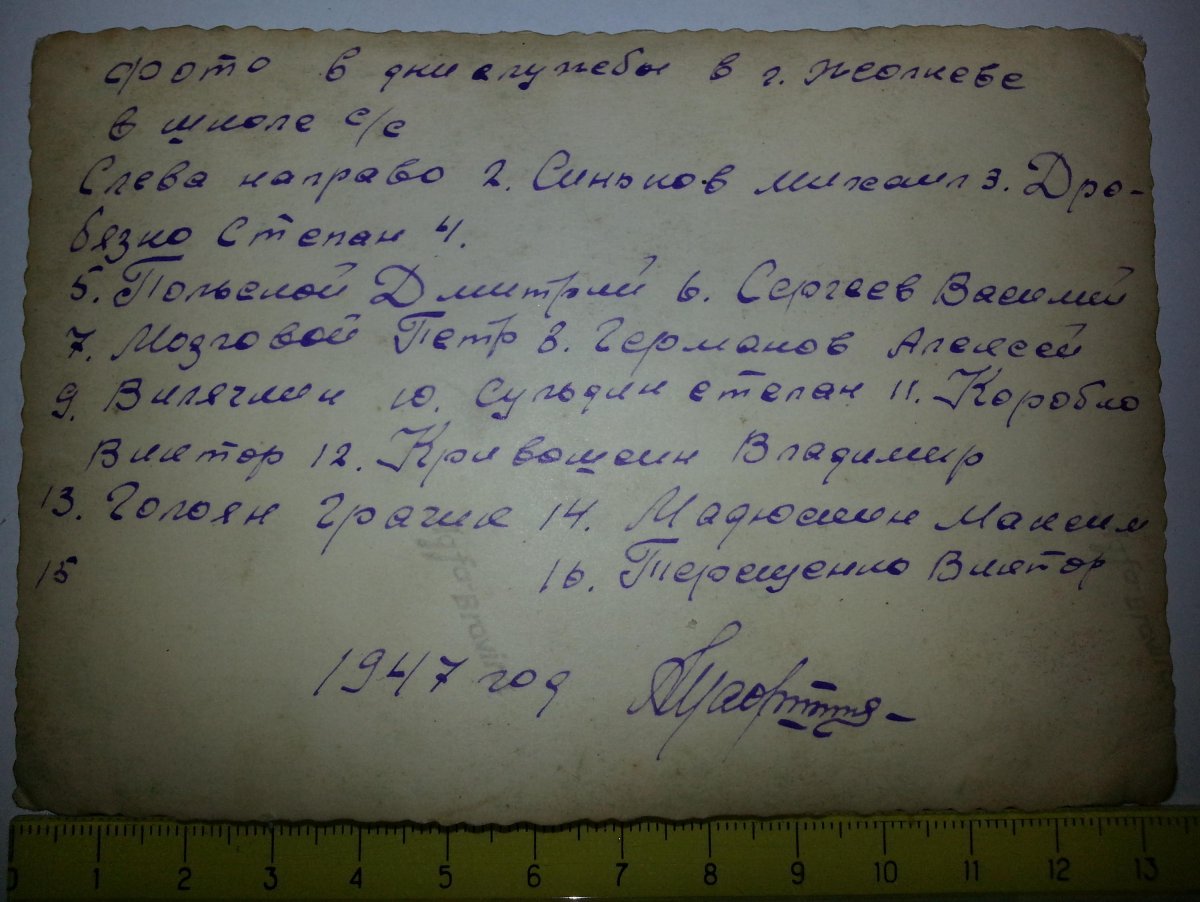 Фото в дни службы в г. Жолкеве
в школе с/с
Слева направо 2. Синьков Михаил 3. Дро-
бязко Степан 4.
5. Польской Дмитрий 6. Сергеев Василий
7. Мозговой Петр 8. Германов Алексей
9. Вилячкин 10. Сульдин Степан 11. Коробко
Виктор 12. Кривошеин Владимир
13. Голоян Грачик 14. Мадюшкин Максим
15 16. Терещенко Виктор
1947 год
0 1 2 3 4 5 6 7 8 9 10 11 12 13